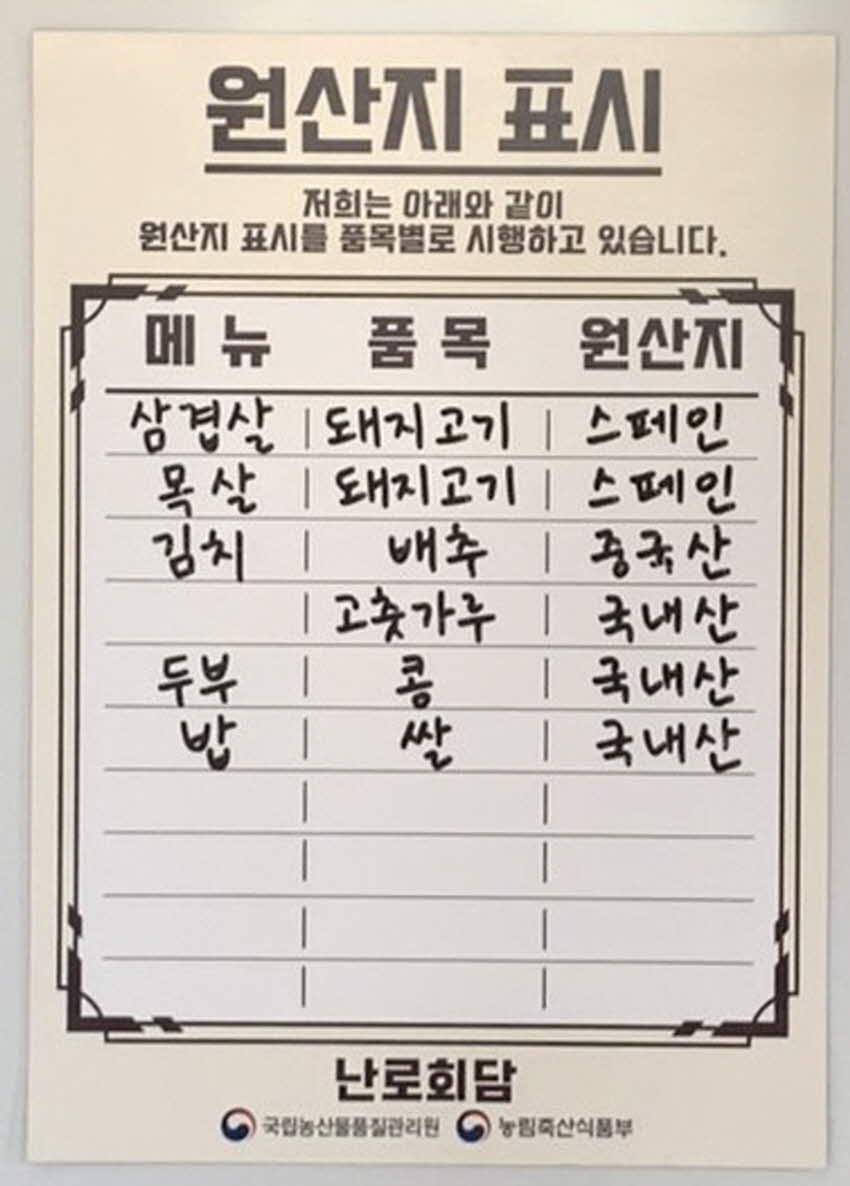 원산지 표시
저희는 아래와 같이
원산지 표시를 품목별로 시행하고 있습니다.
메뉴 품목 원산지
삼겹살 돼지고기 스페인
목살 돼지고기 스페인
김치 배추 중국산
고춧가루 국내산
두부 콩 국내산
밥 쌀 국내산
난로회담
국립농산물품질관리원 농림축산식품부